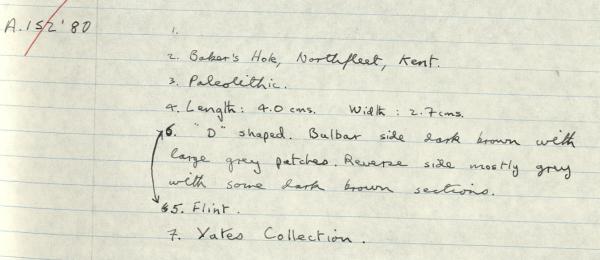 A.152'80
1.
2. Baker's Hole, Northfleet, Kent.
3. Paleolithic.
4. Length: 4.0 cms. Width: 2.7cms.
6. "D" shaped. Bulbar side dark brown with
large grey patches. Reverse side mostly grey
with some dark brown sections.
5. Flint.
7. Yates Collection.